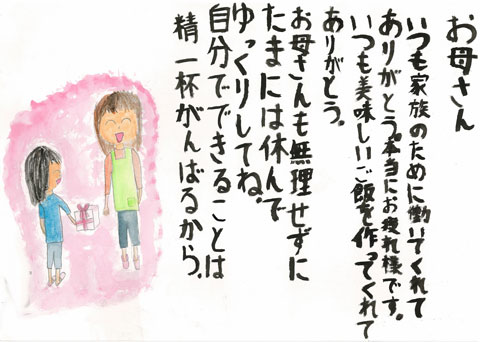 お母さん
いつも家族のために働いてくれて
ありがとう。本当にお疲れ様です。
いつも美味しいご飯を作ってくれて
ありがとう。
お母さんも無理せずに
たまには休んで
ゆっくりしてね。
自分でできることは
精一杯がんばるから。